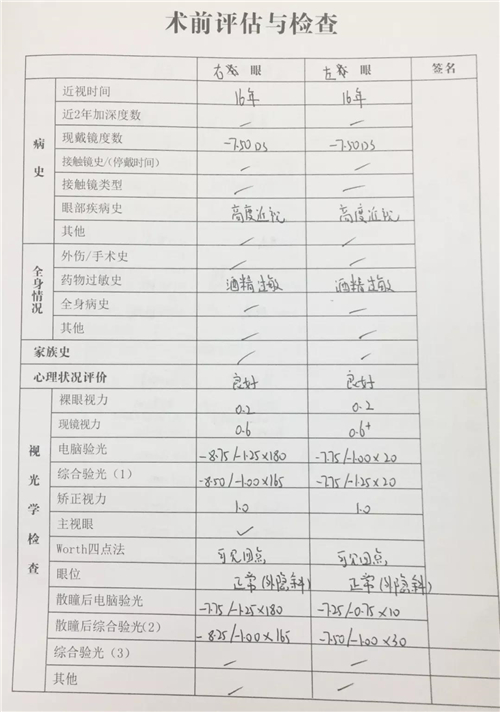 术前评估与检查
右 眼 左 眼 签名
病史
近视时间 16年 16年
近2年加深度数 — —
现戴镜度数 -7.50DS -7.50DS
接触镜史/(停戴时间) — —
接触镜类型 — —
眼部疾病史 高度近视 高度近视
其他 — —
全身情况
外伤/手术史 — —
药物过敏史 酒精过敏 酒精过敏
全身病史 — —
其他 — —
家族史 — —
心理状况评价 良好 良好
视光学检查
裸眼视力 0.2 0.2
现镜视力 0.6 0.6+
电脑验光 -8.75/-1.25×180 -7.75/-1.00×20
综合验光（1） -8.50/-1.00×165 -7.75/-1.25×20
矫正视力 1.0 1.0
主视眼 ✓
Worth四点法 可见四点 可见四点
眼位 正常(外隐斜) 正常(外隐斜)
散瞳后电脑验光 -7.75/-1.25×180 -7.25/-0.75×10
散瞳后综合验光(2) -8.25/-1.00×165 -7.50/-1.00×30
综合验光（3） — —
其他 — —